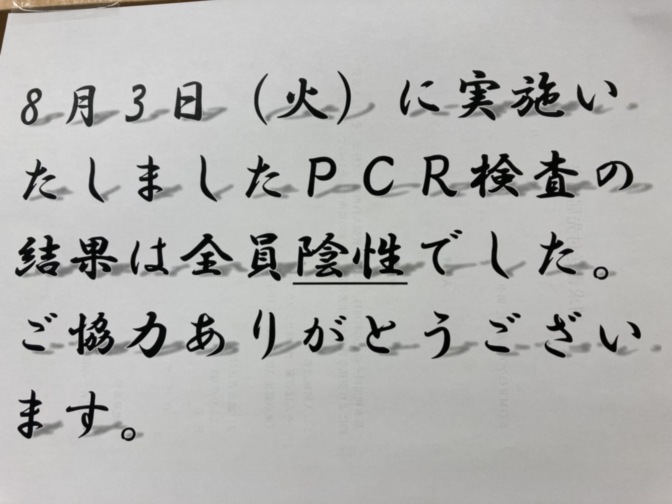 8月3日（火）に実施い
たしましたＰＣＲ検査の
結果は全員陰性でした。
ご協力ありがとうござい
ます。